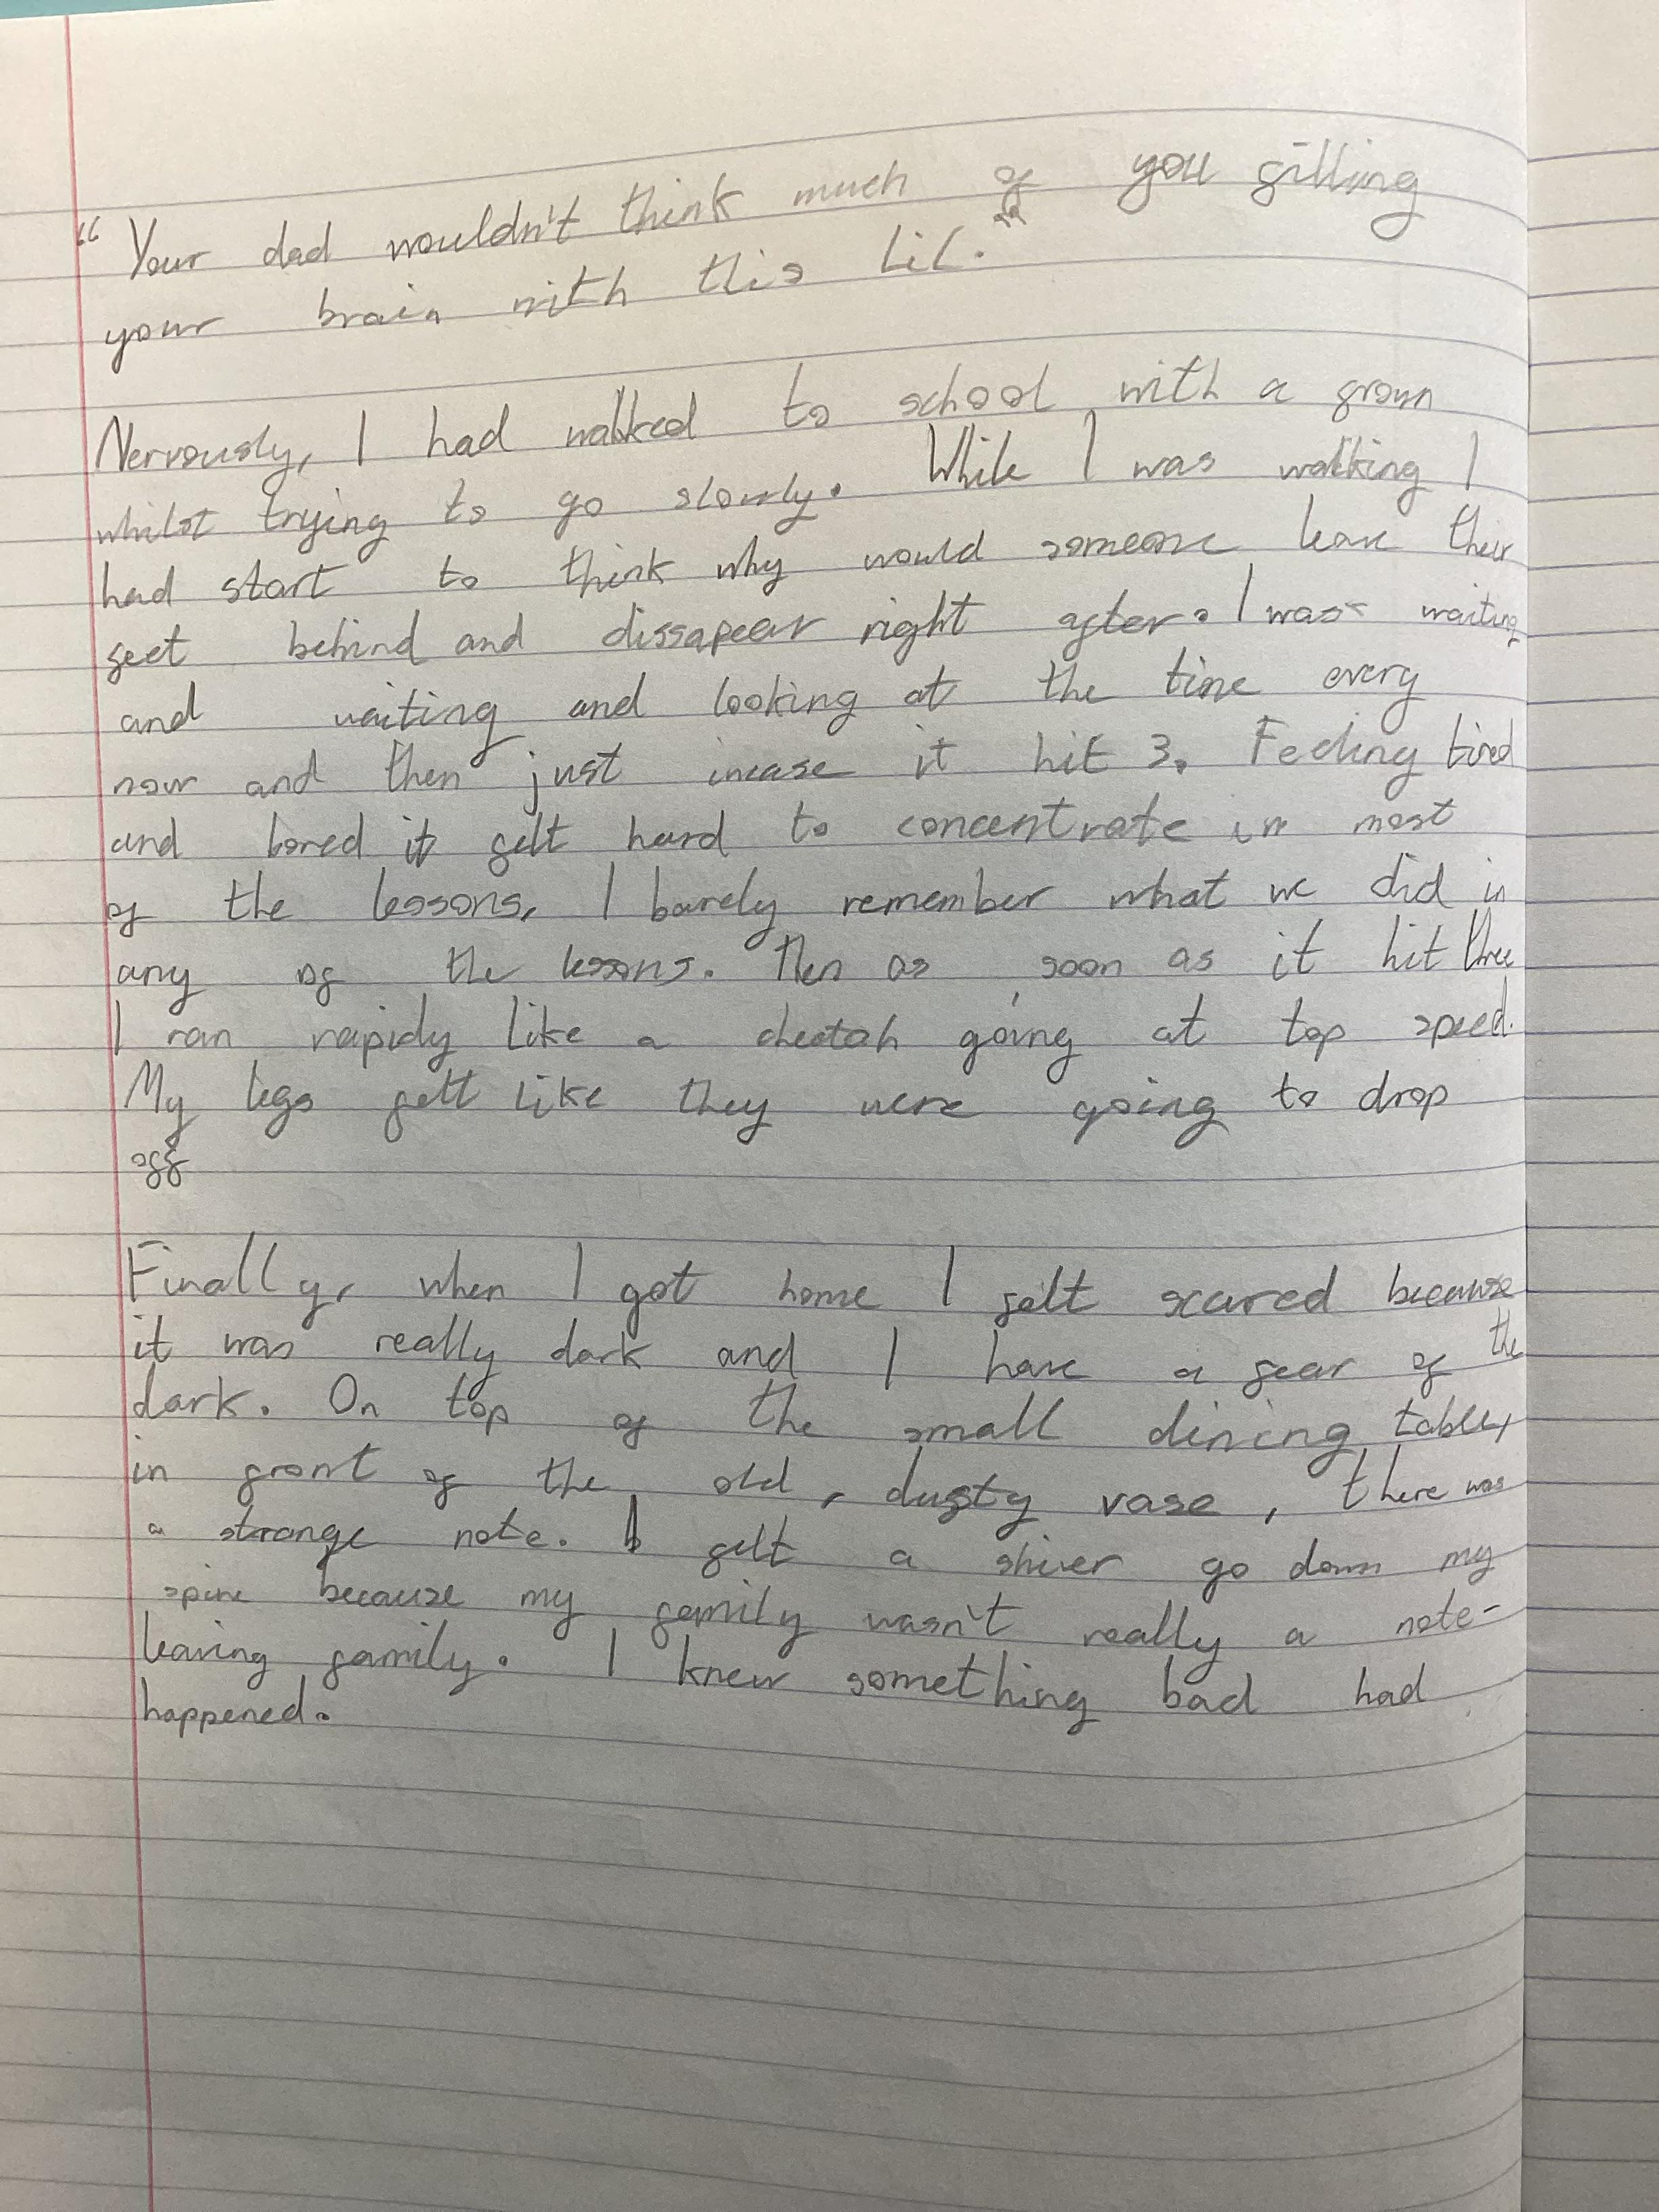 "Your dad wouldn't think much of you filling
your brain with this Lil."
Nervously, I had walked to school with a grown
whilst trying to go slowly. While I was walking I
had start to think why would someone leave their
feet behind and dissapear right after. I was waiting
and waiting and looking at the time every
now and then just incase it hit 3. Feeling tired
and bored it felt hard to concentrate in most
of the lessons, I barely remember what we did in
any of the lessons. Then as soon as it hit three
I ran rapidy like a cheetah going at top speed.
My legs felt like they were going to drop
off
Finally, when I got home I felt scared because
it was really dark and I have a fear of the
dark. On top of the small dining table,
in front of the old, dusty vase, there was
a strange note. I felt a shiver go down my
spine because my family wasn't really a note-
leaving family. I knew something bad had
happened.